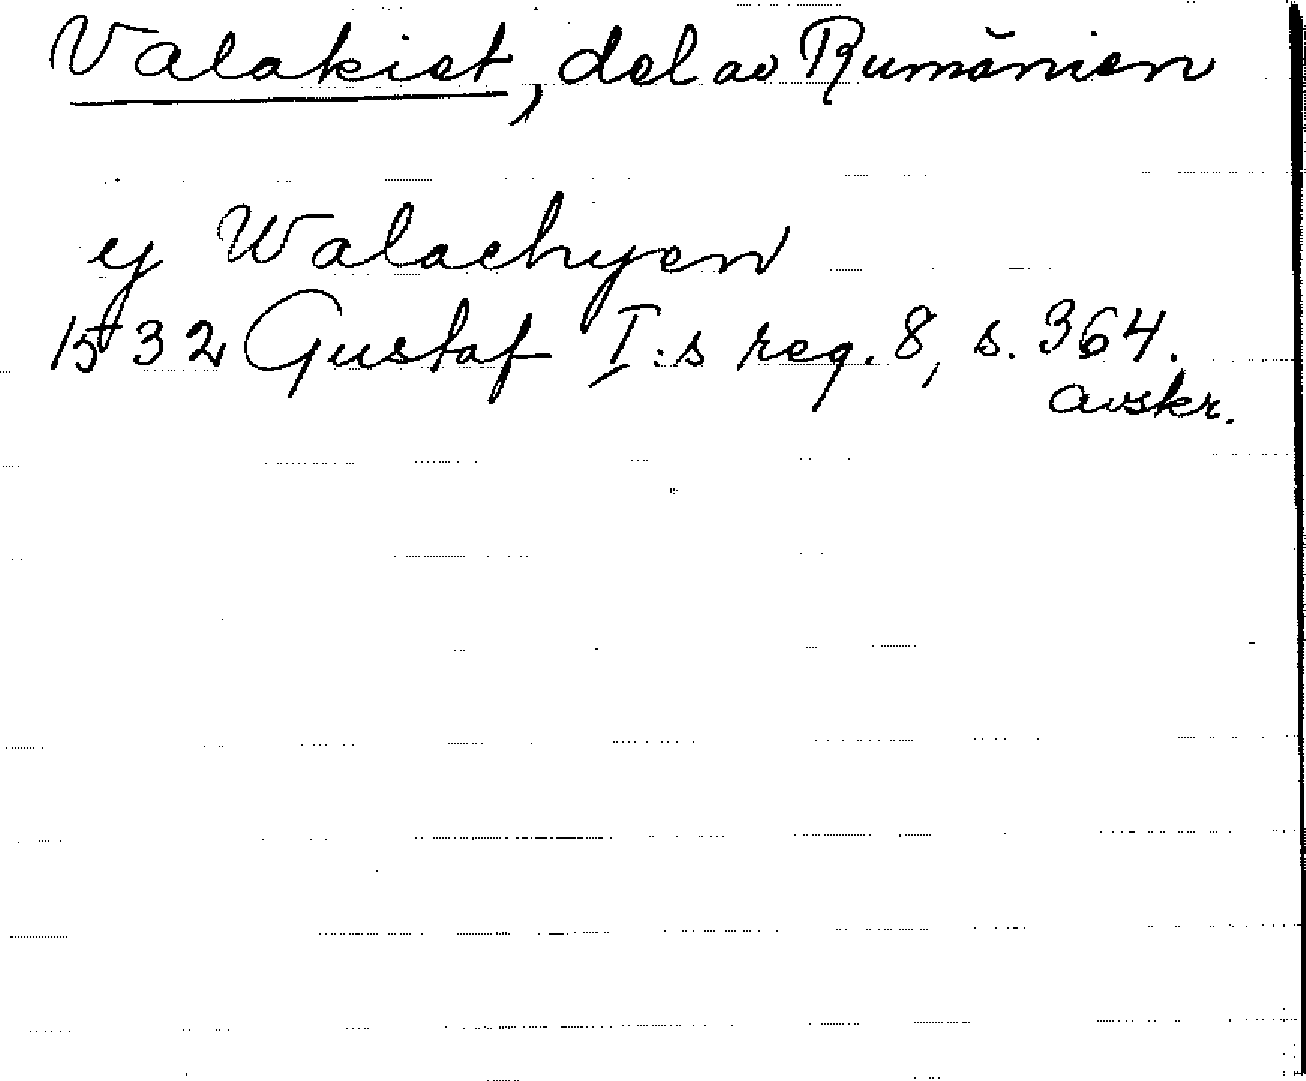 Valakiet, del av Rumänien
ej Walachyen
1532 Gustaf I:s reg. 8, s. 364.
avskr.